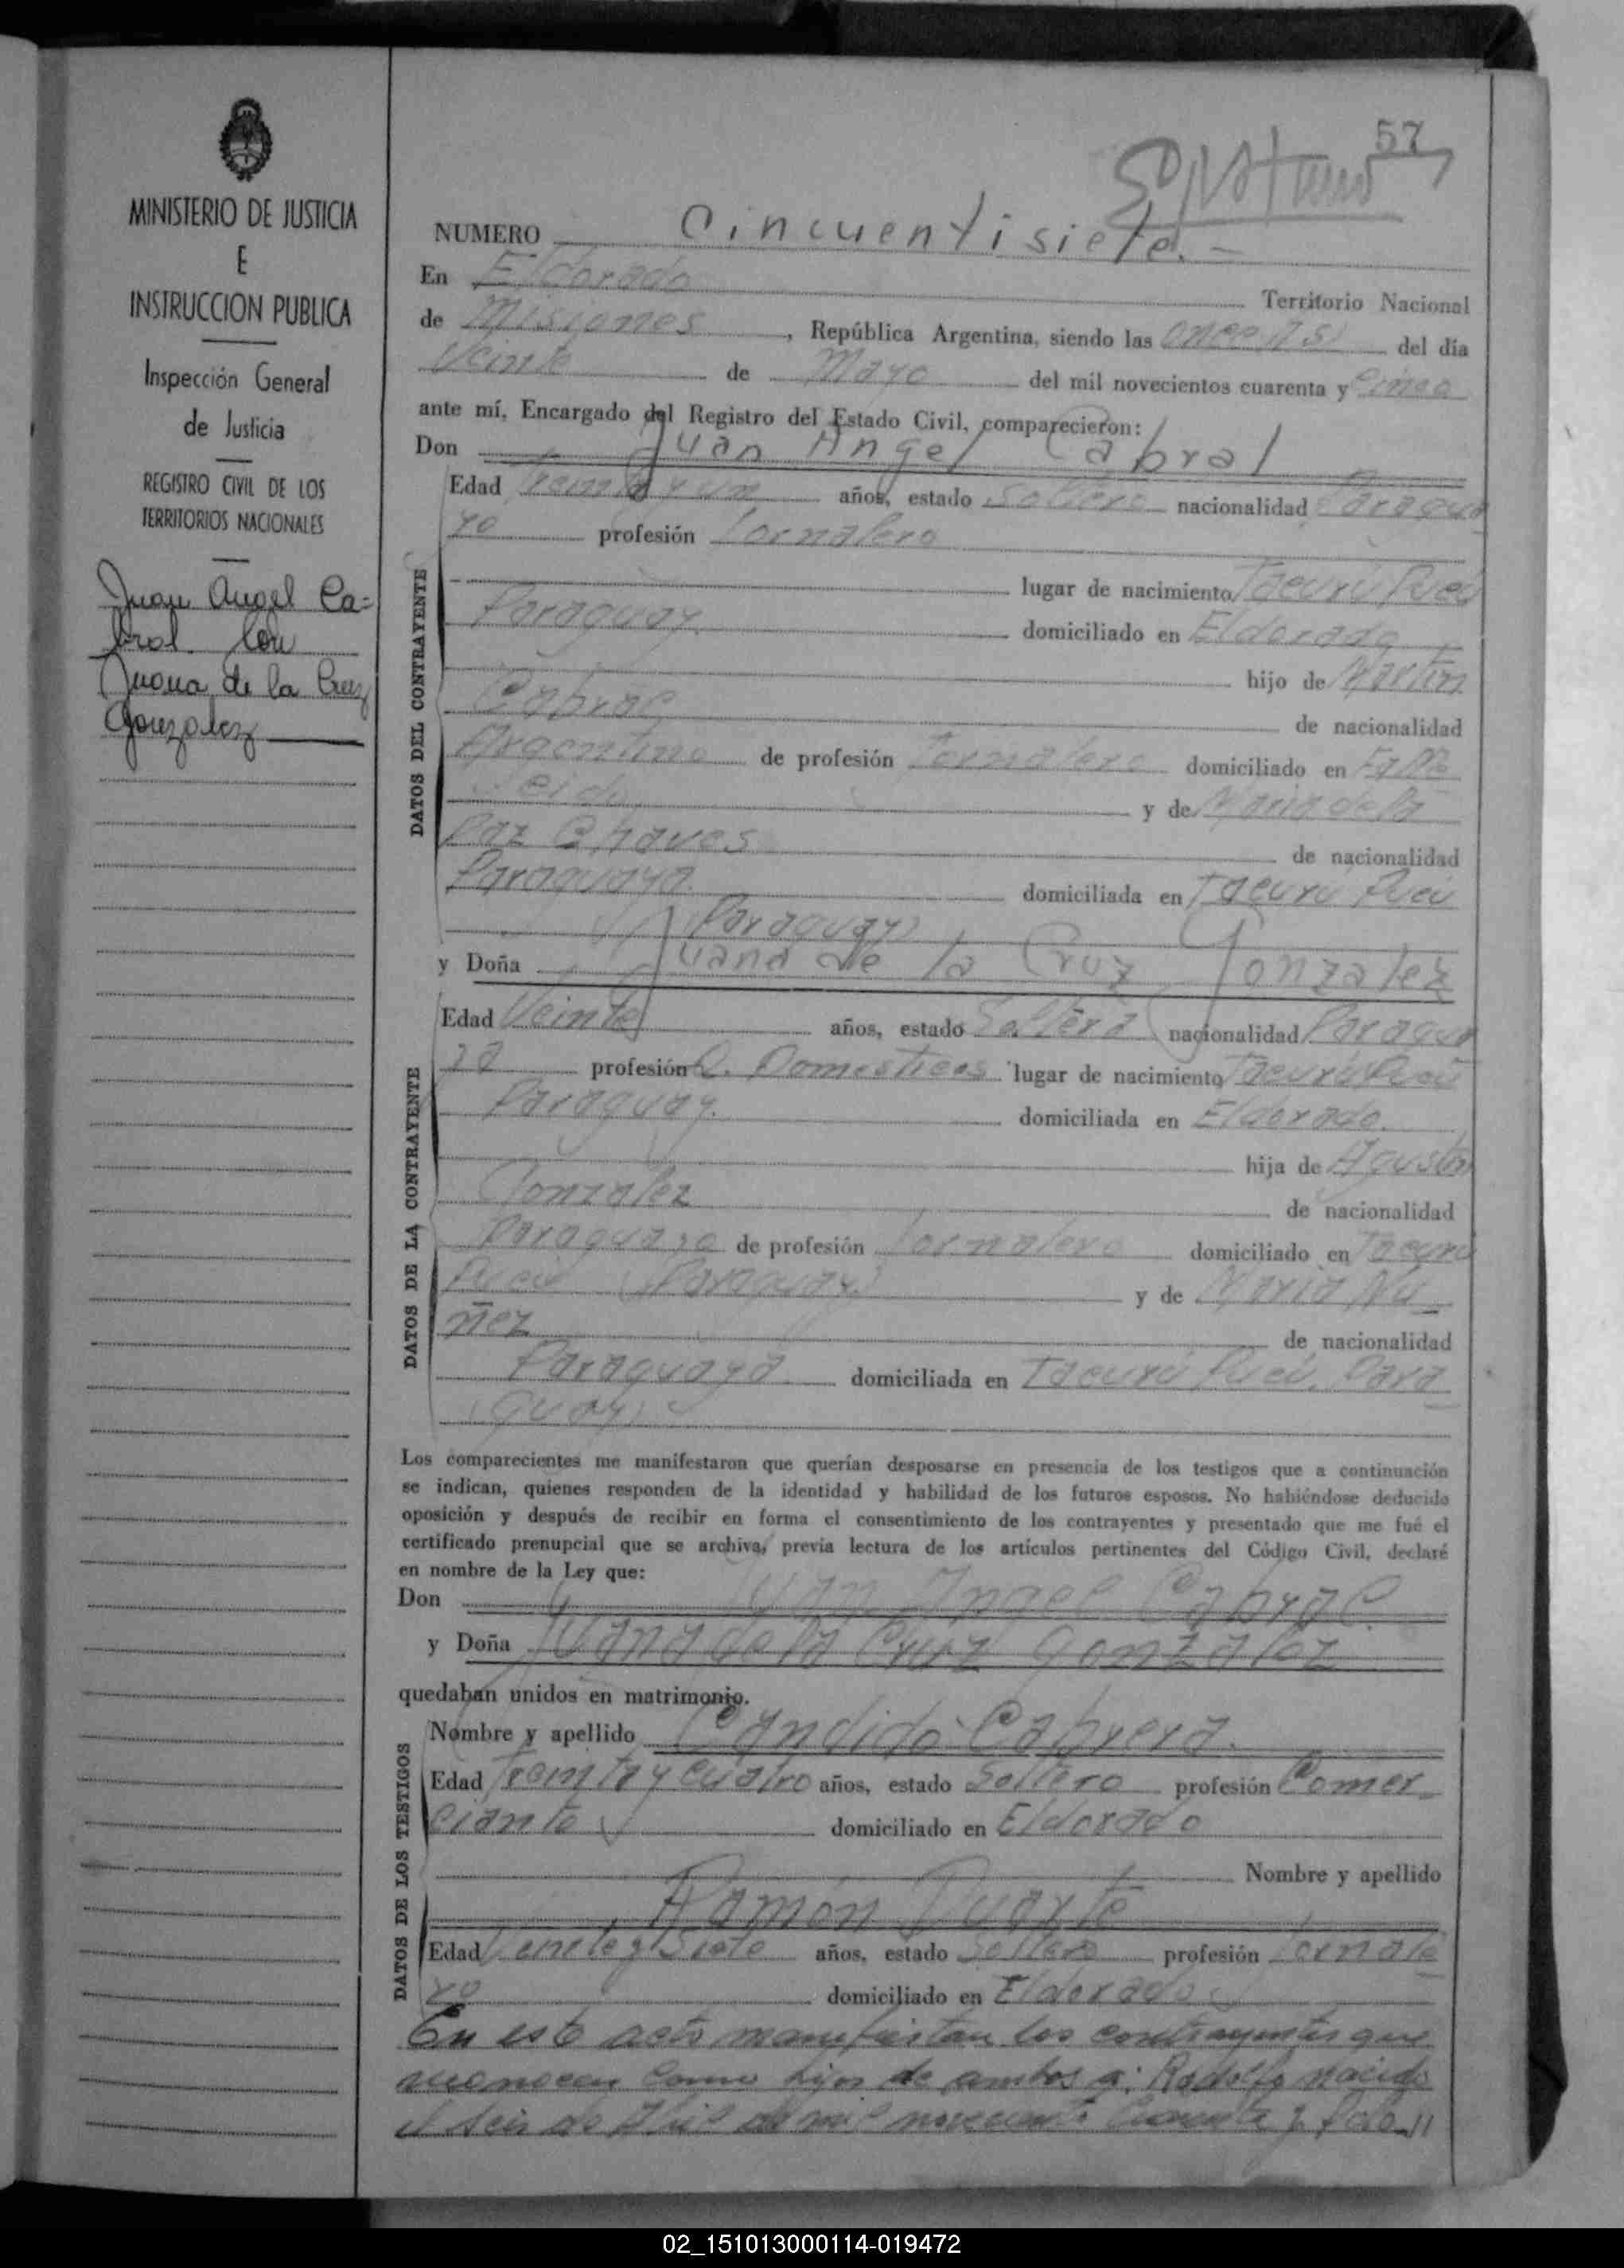 57
MINISTERIO DE JUSTICIA
E
INSTRUCCION PUBLICA
Inspección General
de Justicia
REGISTRO CIVIL DE LOS
TERRITORIOS NACIONALES
Juan Angel Ca=
bral con
Juana de la Cruz
Gonzalez
NUMERO Cincuentisiete.-
En Eldorado Territorio Nacional
de Misiones, República Argentina, siendo las once del día
Veinte de Mayo del mil novecientos cuarenta y Cinco
ante mí, Encargado del Registro del Estado Civil, comparecieron:
Don Juan Angel Cabral
DATOS DEL CONTRAYENTE
Edad treinta y un años, estado Soltero nacionalidad Paragua
yo profesión Jornalero
lugar de nacimiento Tacurú Pucú
Paraguay. domiciliado en Eldorado
hijo de Martín
Cabral de nacionalidad
Argentino de profesión Jornalero domiciliado en Falle
cido y de Maria de la
Paz Chaves de nacionalidad
Paraguaya. domiciliada en Tacurú Pucú
(Paraguay)
y Doña Juana de la Cruz Gonzalez
DATOS DE LA CONTRAYENTE
Edad Veinte años, estado Soltera nacionalidad Paragua
ya profesión Q. Domesticos lugar de nacimiento Tacurú Pucú
Paraguay. domiciliada en Eldorado.
hija de Agustin
Gonzalez de nacionalidad
Paraguayo de profesión Jornalero domiciliado en Tacurú
Pucú (Paraguay) y de Maria Nu
ñez de nacionalidad
Paraguaya. domiciliada en Tacurú Pucú. Para
guay)
Los comparecientes me manifestaron que querían desposarse en presencia de los testigos que a continuación
se indican, quienes responden de la identidad y habilidad de los futuros esposos. No habiéndose deducido
oposición y después de recibir en forma el consentimiento de los contrayentes y presentado que me fué el
certificado prenupcial que se archiva, previa lectura de los artículos pertinentes del Código Civil, declaré
en nombre de la Ley que:
Don Juan Angel Cabral
y Doña Juana de la Cruz Gonzalez
quedaban unidos en matrimonio.
DATOS DE LOS TESTIGOS
Nombre y apellido Candido Cabrera.
Edad Treinta y cuatro años, estado Soltero profesión Comer-
ciante domiciliado en Eldorado
Nombre y apellido
Ramón Duarte
Edad Veinte y Siete años, estado Soltero profesión Jornale
ro domiciliado en Eldorado
En este acto manifiestan los contrayentes que
reconocen como hijos de ambos a: Rodolfo nacido
el seis de de mil novecientos cuarenta y
02_151013000114-019472